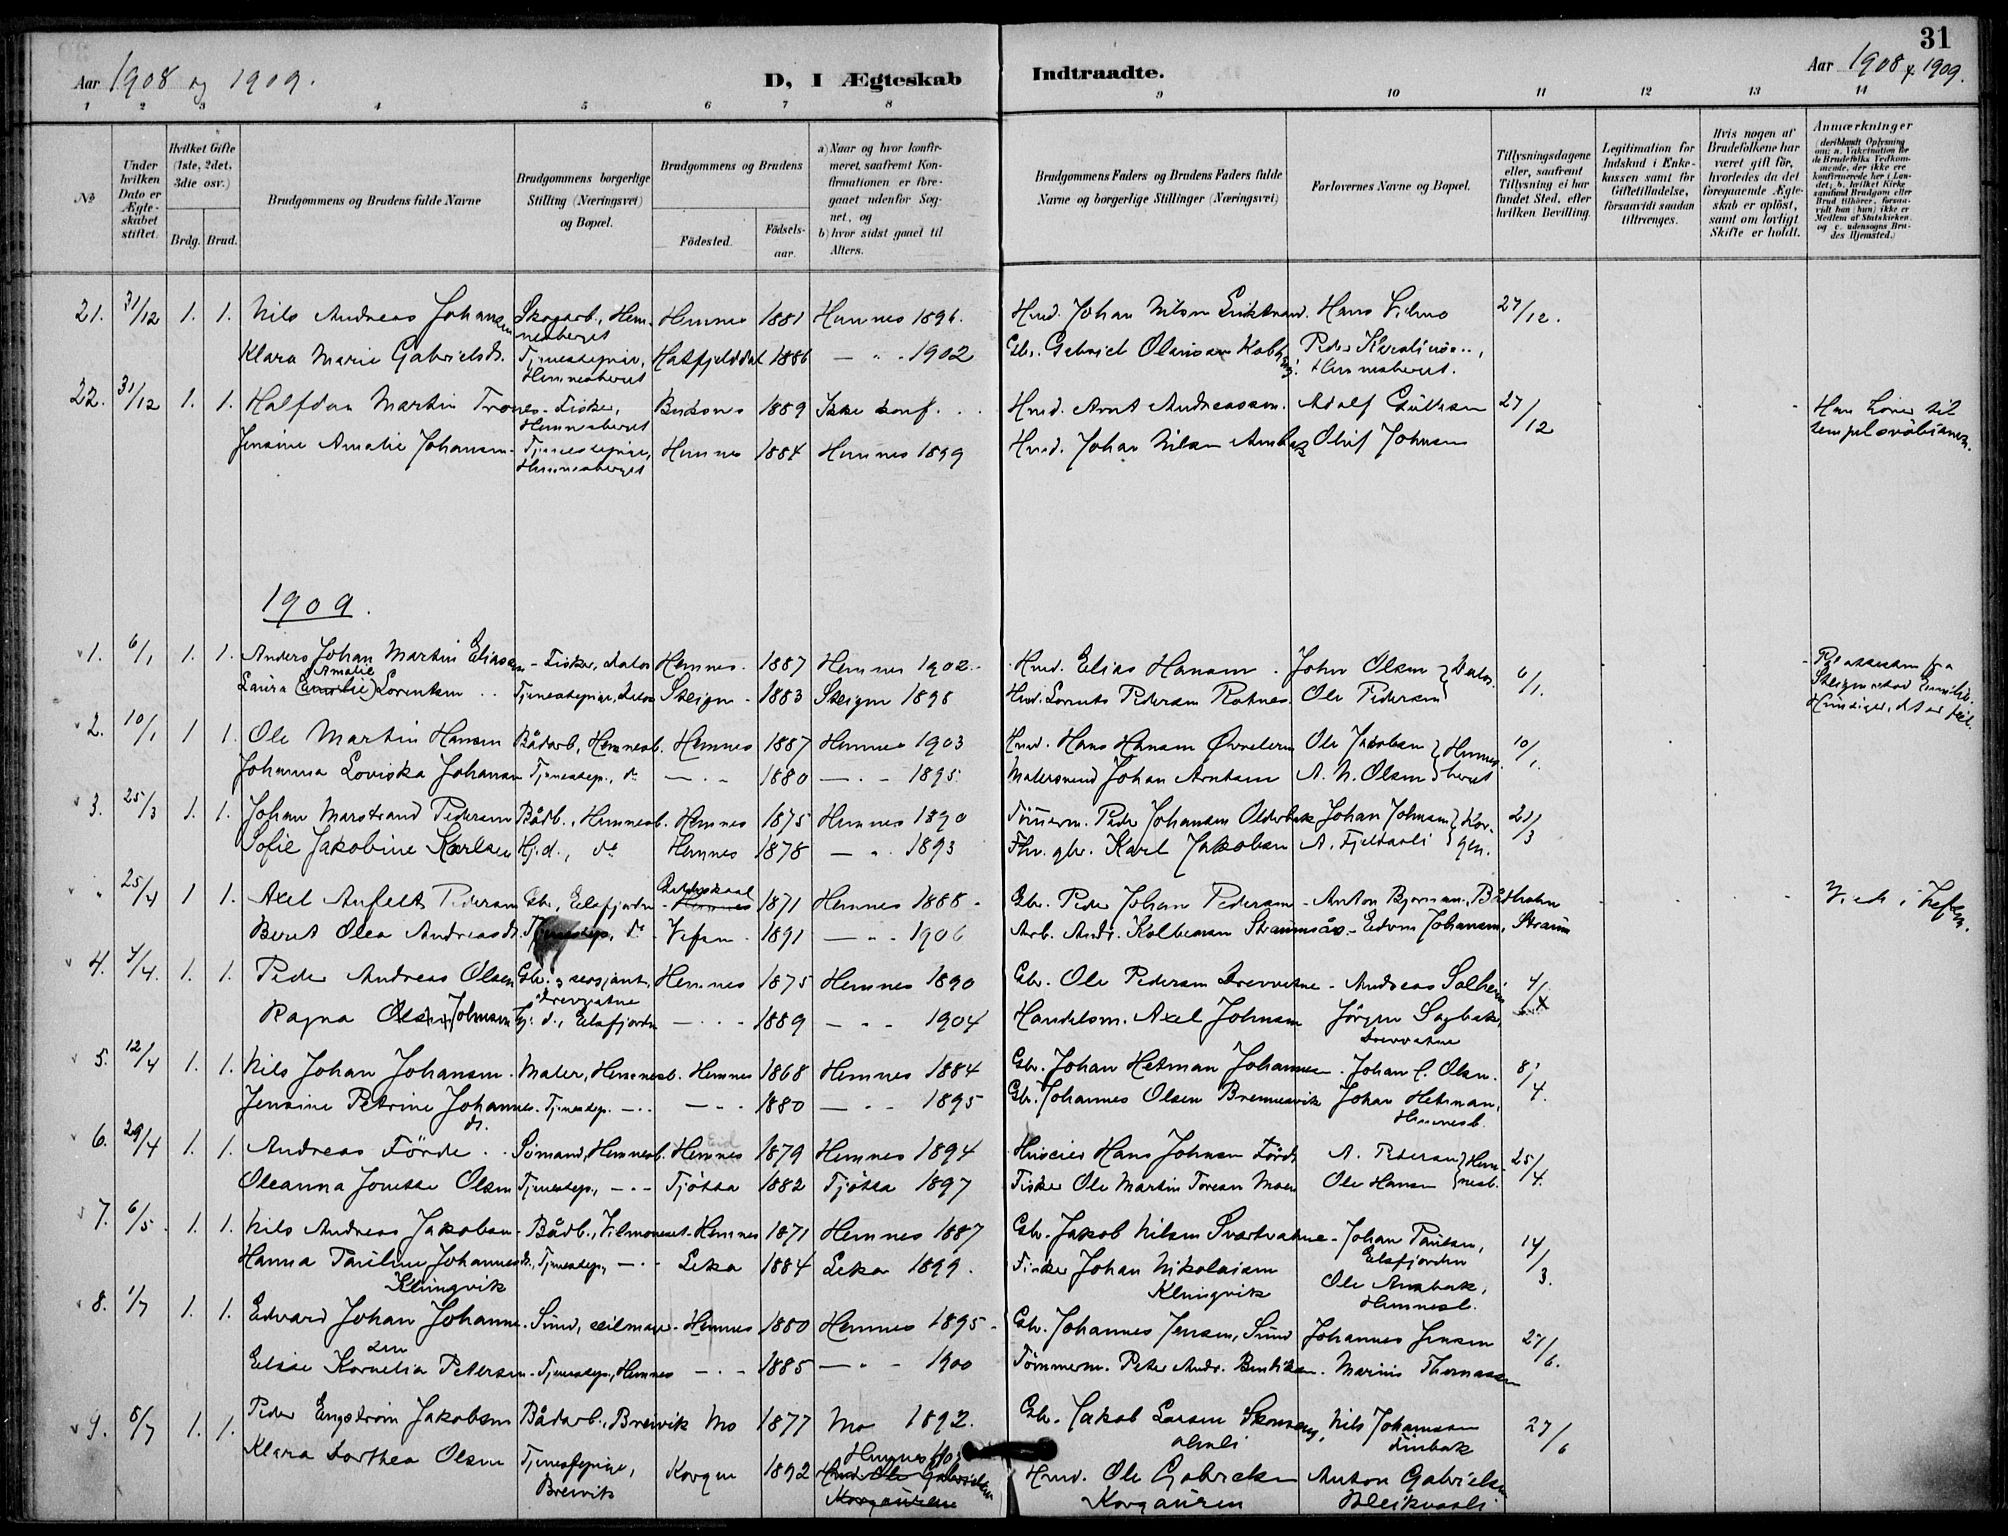 31
Aar 1908 og 1909.
D, I Ægteskab Indtraadte.
Aar 1908 & 1909.
1 2 3 4 5 6 7 8 9 10 11 12 13 14
No
Under hvilken Dato er Ægteskabet stiftet.
Hvilket Gifte (1ste, 2det, 3die osv.)
Brdg. Brud.
Brudgommens og Brudens fulde Navne
Brudgommens borgerlige Stilling (Næringsvei) og Bopæl.
Brudgommens og Brudens
Födested.
Födselsaar.
a) Naar og hvor konfirmeret, saafremt Konfirmationen er foregaaet udenfor Sognet, og
b) hvor sidst gaaet til Alters.
Brudgommens Faders og Brudens Faders fulde Navne og borgerlige Stillinger (Næringsvei)
Forlovernes Navne og Bopæl.
Tillysningsdagene eller, saafremt Tillysning ei har fundet Sted, efter hvilken Bevilling.
Legitimation for Indskud i Enkekassen samt for Giftetilladelse, forsaavidt saadan tiltrænges.
Hvis nogen af Brudefolkene har været gift för, hvorledes da det foregaaende Ægteskab er oplöst, samt om lovligt Skifte er holdt.
Anmærkninger
(deriblandt Oplysning om: a. Vakcination for de Brudefolks Vedkommende, der ikke ere konfirmerede her i Landet; b. hvilket Kirkesamfund Brudgom eller Brud tilhörer, forsaavidt han (hun) ikke er Medlem af Statskirken, og c. udensogns Brudes Hjemsted.)
21. 31/12 1. 1. Nils Andreas Johansen Skogarb., Hemnesberget Hemnes 1881 Hemnes 1896. Hmd. Johan Nilsen Hans 27/12.
Klara Marie Gabrielsd. Tjenestepige, Hemnesberget Hatfjelddal 1886 — " - 1902 Gbr. Gabriel Peder Hemnesberget.
22. 31/12 1. 1. Halfdan Martin Trones - Fisker, Hemnesberget Buksnes 1889 Ikke konf. Hmd. Arnt Andreassen. Adolf 27/12
Jensine Amalie Johansen - Tjenestepige, Hemnesberget Hemnes 1884 Hemnes 1899 Hmd. Johan Nilsen Oluf Johnsen
1909.
1. 6/1 1. 1. Anders Johan Martin Eliasen - Fisker, Hemnes. 1887 Hemnes 1902. Hmd. Elias Hansen. John Olsen 6/1.
Laura (Emelie) Amalie Lorentsen Tjenestepige, Steigen - 1883 Steigen 1898 Hmd. Lorents Pedersen Rotnes. Ole Pedersen
2. 10/1 1 1. Ole Martin Hansen Bådarb., Hemnesb. Hemnes 1887 Hemnes 1903 Hmd. Hans Hansen Ole Jakobsen } Hemnesberget 10/1.
Johanna Loviska Johansen Tjenestep., do — " - 1880 — " - 1895. Malersvend Johan Arntsen A. N. Olsen
3. 25/3 1. 1. Johan Marstrand Pedersen Bådb., Hemnesb. Hemnes 1875 Hemnes 1890 Tömerm. Peder Johansen Olderbak Johan Johnsen } Korgen. 21/3
Sofie Jakobine Karlsen Hj.d., do Hemnes 1878 — " - 1893 Karl Jakobsen A. Fjeldavli
" 25/4 1 1. Axel Anfelt Pedersen Gbr., Elsfjorden Hemnes 1871 Hemnes 1888 - Gbr. Peder Johan Pedersen - Anton
Berit Olea Andreasd. Tjenestep., do - Vefsn. 1891 — " - 1906 Arb. Andr. Kolbensen Straumsås - Edvin Johansen, Straum
4. 4/4. 1. 1. Peder Andreas Olsen Gbr. & sersjant, Drevvatne Hemnes 1875 Hemnes 1890 Gbr. Ole Pedersen Drevvatne - Andreas Solheim 4/4
Ragna Olsen Johnsen Hj. d., Elsfjorden — " - 1889 — " - 1904 Handelsm. Axel Johnsen Jörgen Sagbak, Drevvatne
5. 12/4 1. 1. Nils Johan Johansen. Maler, Hemnesb. Hemnes 1868 Hemnes 1884 Gbr. Johan Hetman Johannesen. Johan C. Olsen. 8/4.
Jensine Petrine Johannesd. Tjenestep. — " — " - 1880 — " - 1895 Gbr. Johannes Olsen Bremnesvik Johan Hetman, Hemnesb.
6. 29/4 1. 1. Andreas Förde. Sömand, Hemnesb. Hemnes 1879 Hemnes 1894 Huseier Hans Johnsen Förde A. Pedersen } Hemnesb. 25/4.
Oleanna Jonette Olsen Tjenestep., — " - Tjötta 1882 Tjötta 1897 Fisker Ole Martin Toresen Moen Ole Hansen
7. 6/5. 1. 1. Nils Andreas Jakobsen - Bådb., Vilmoneset - Hemnes 1871 Hemnes 1887 Gbr. Jakob Nilsen Svartvatne - Johan Paulsen, Elsfjorden 14/3.
Hanna Pauline Johannesd. Klungvik Tjenestep., — " - Leka 1884 Leka 1899. Fisker Johan Nikolaisen Klungvik Ole Ambak, Hemnesb.
8. 1/7 1. 1. Edvard Johan Johannesen - Sund, - Hemnes 1880 Hemnes 1895 - Gbr. Johannes Jensen, Sund Johannes Jensen 27/6.
Elise Kornelia Petersen - Tjenestep., Hemnes — " - 1885 — " - 1900 Tömmerm. Peter Andr. Bentsen. Marius Thomassen
9. 8/7 1. 1. Peder Engström Jakobsen Bådarb., Breivik Mo 1877 Mo 1892. Gbr. Jakob Larsen Skonseng, Nils Johannesen Finbak 27/6
Klara Dorthea Olsen Tjenestepige, Breivik Korgen 1892 Hemnes Hmd. Ole Gabrielsen Korgauren Hmd. Ole Gabrielsen Korgauren Anton Gabrielsen Bleikvasli